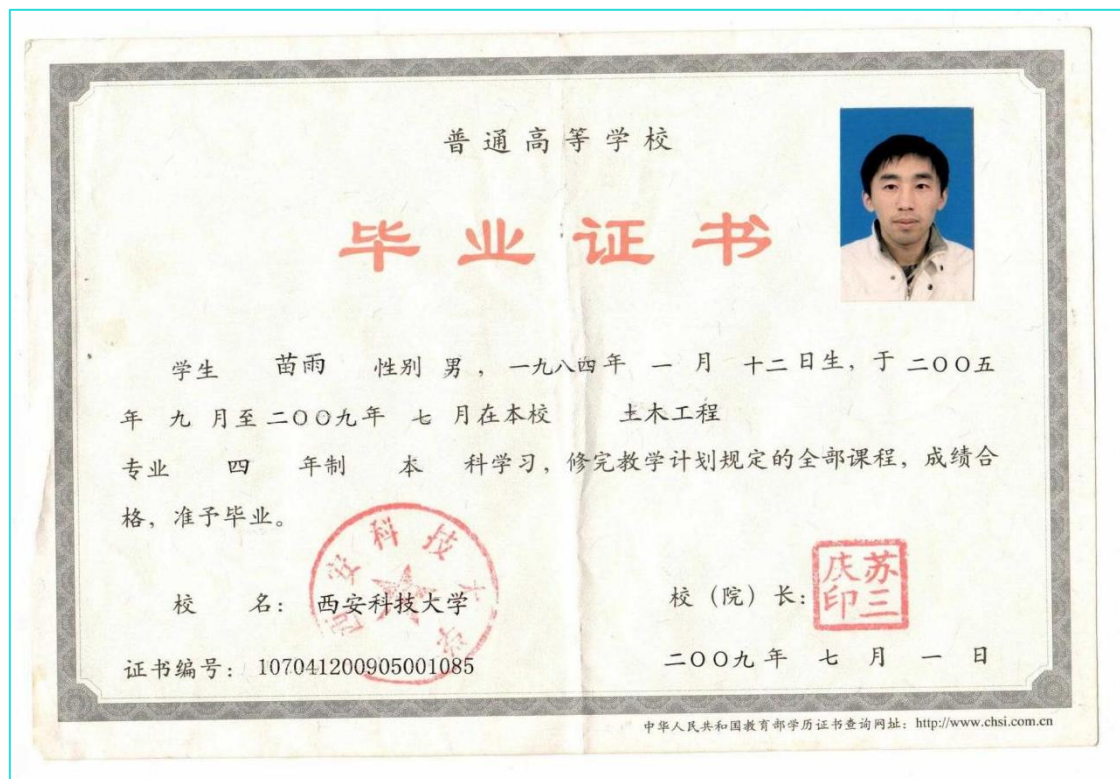 普通高等学校
毕业证书
学生 苗雨 性别 男，一九八四年 一 月 十二日生，于二〇〇五
年 九 月至二〇〇九年 七 月在本校 土木工程
专业 四 年制 本 科学习，修完教学计划规定的全部课程，成绩合
格，准予毕业。
西安科技大学
校 名：西安科技大学
校（院）长：
苏三庆印
证书编号：107041200905001085
二〇〇九年 七 月 一 日
中华人民共和国教育部学历证书查询网址：http://www.chsi.com.cn